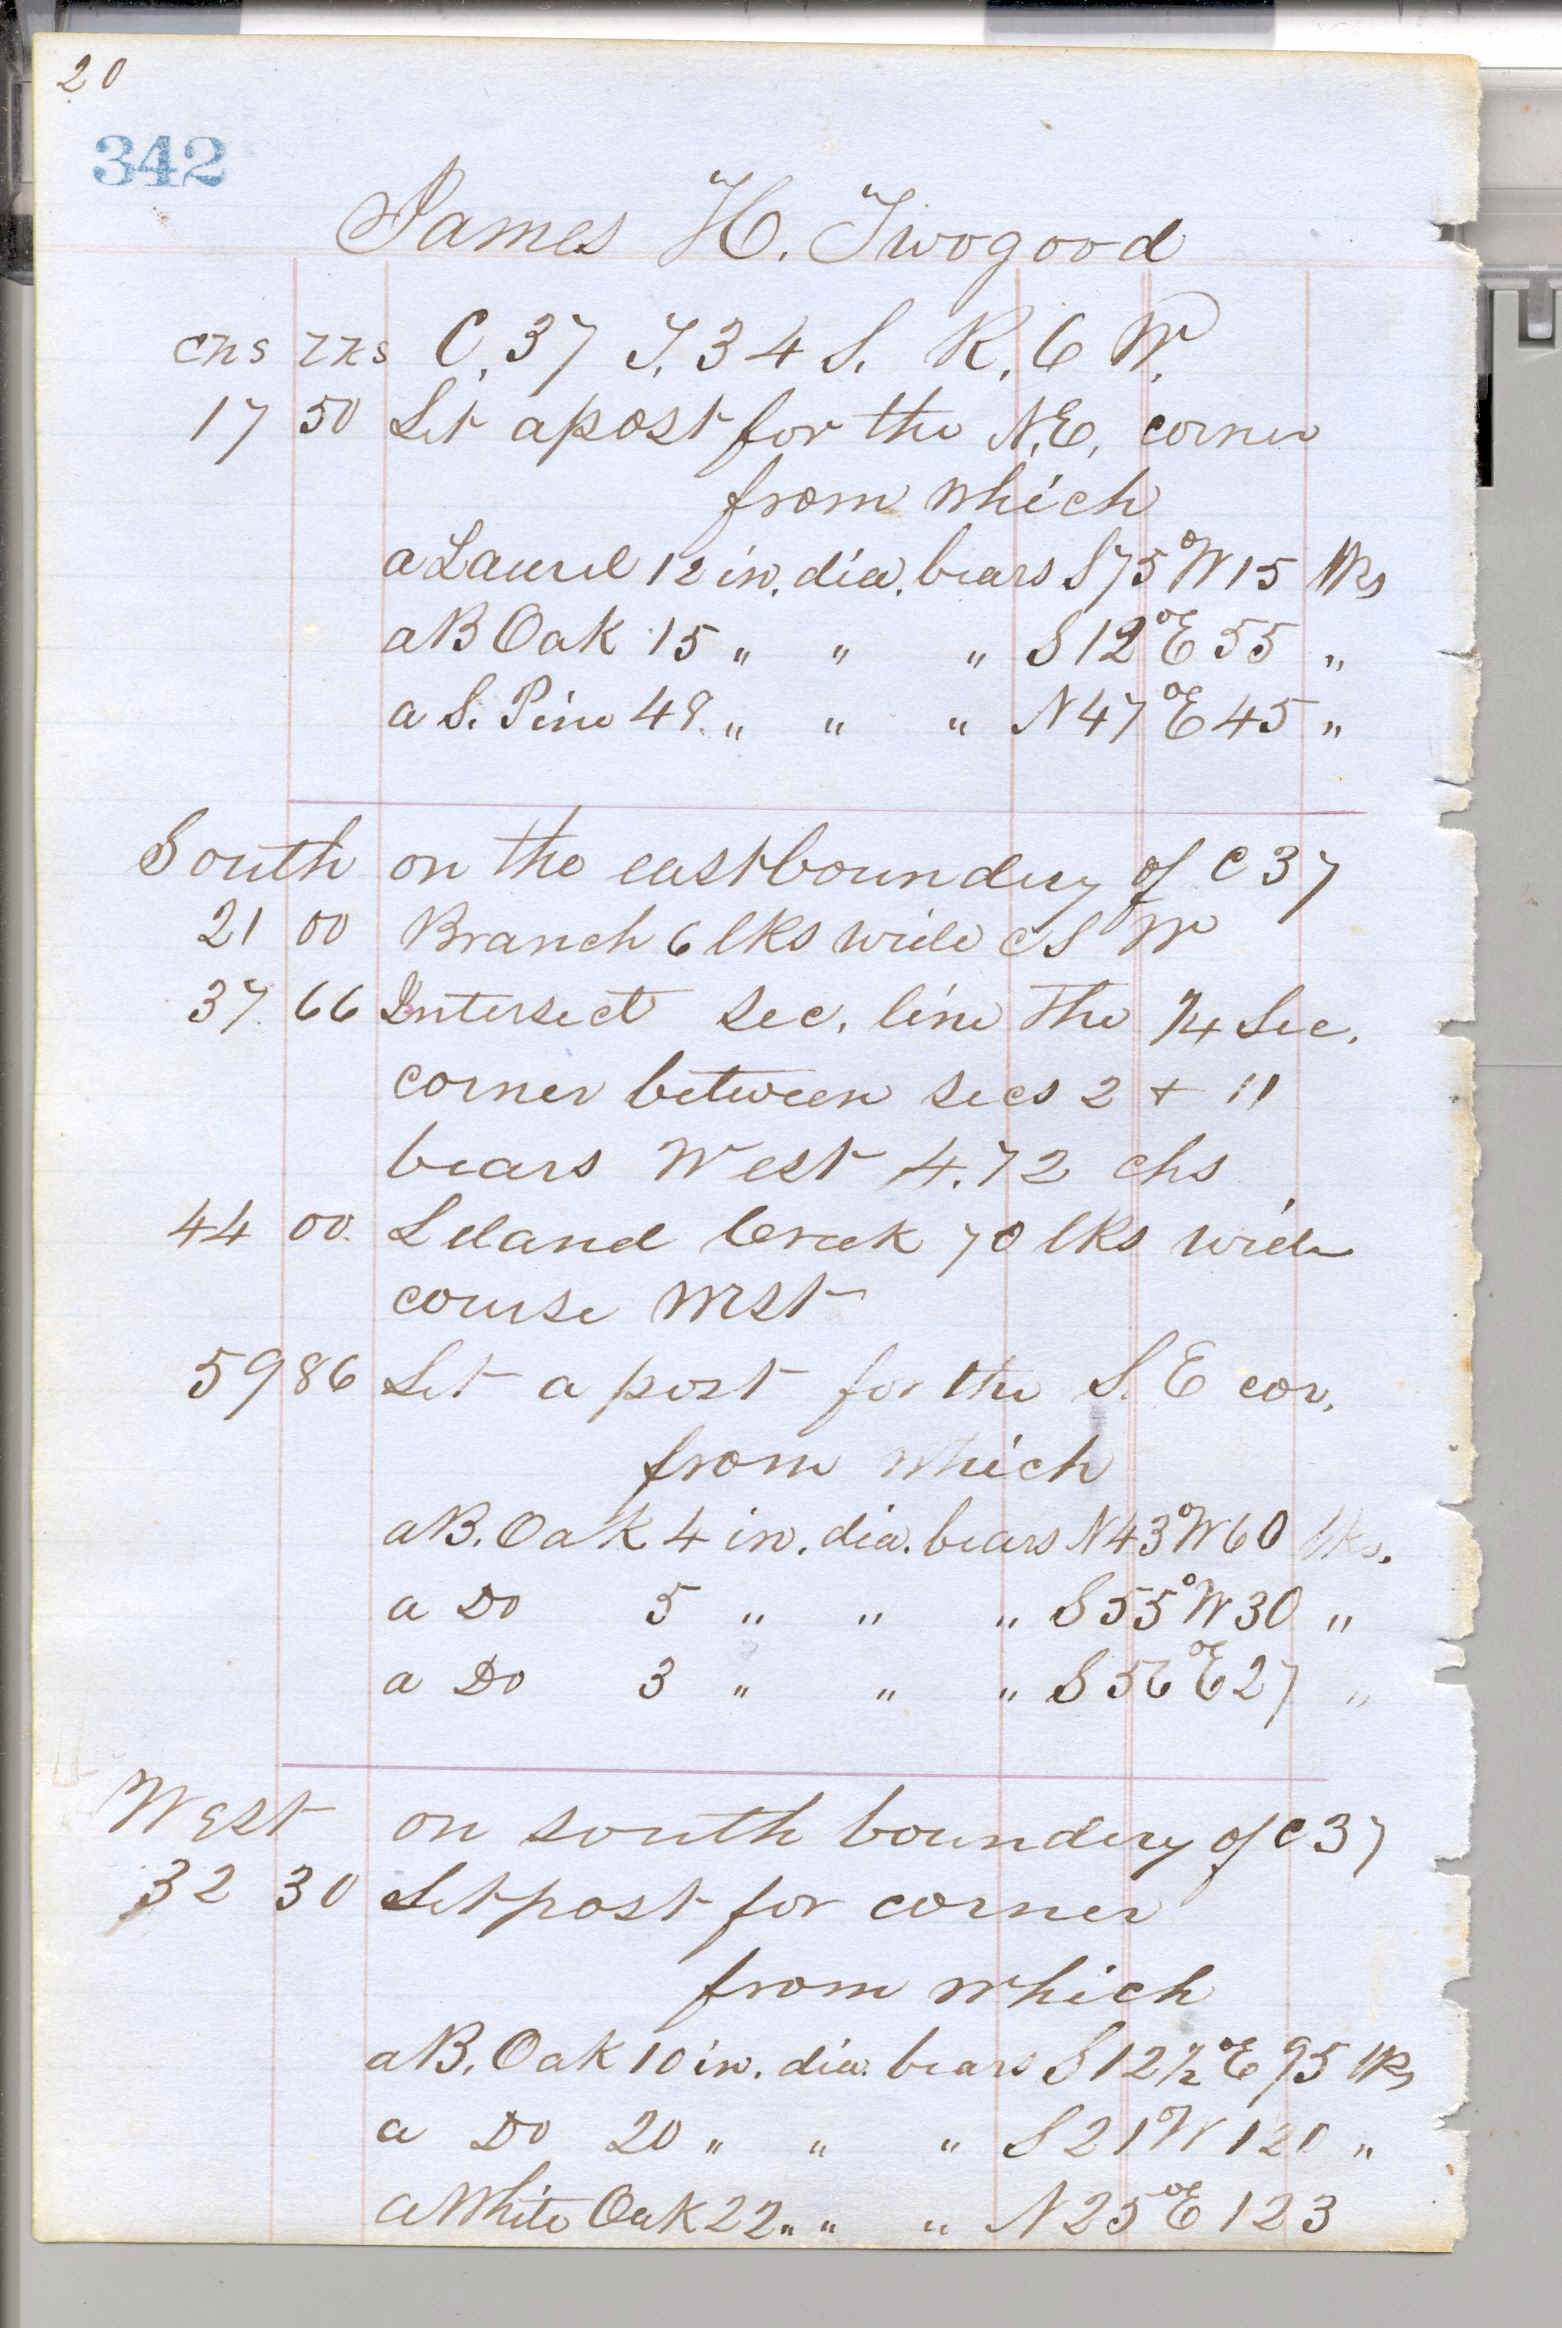 20
342
James H. Twogood
chs lks C. 37 T. 34 S. R. 6 W.
17 50 Set a post for the N.E. corner
from which
a Laurel 12 in. dia. bears S 75° W 15 lks
a B Oak 15 " " " S 12° E 55 "
a S. Pine 48 " " " N 47° E 45 "
South on the east boundery of C 37
21 00 Branch 6 lks wide C S W
37 66 Intersect sec. line The 1/4 Sec.
corner between secs 2 + 11
bears West 4.72 chs
44 00 Leland Creek 70 lks wide
course West
59 86 Set a post for the S. E cor.
from which
a B. Oak 4 in. dia. bears N 43° W 60 lks.
a Do 5 " " " S 55° W 30 "
a Do 3 " " " S 56° E 27 "
West on south boundery of C 37
32 30 Set post for corner
from which
a B. Oak 10 in. dia. bears S 12 1/2° E 95 lks
a Do 20 " " " S 21° W 120 "
a White Oak 22 " " " N 25° E 123